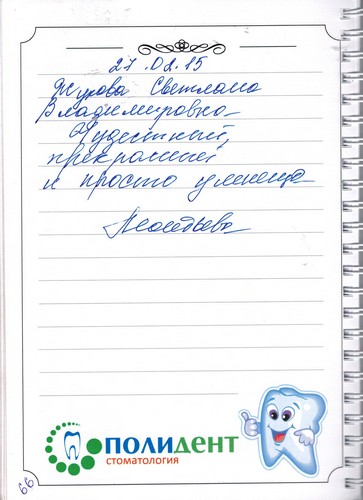 27.02.15
Журова Светлана
Владимировна -
Чудесный,
прекрасный
и просто умница
ПОЛИДЕНТ
СТОМАТОЛОГИЯ
66